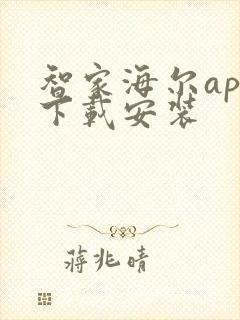 智家海尔ap
下载安装
蒋兆晴